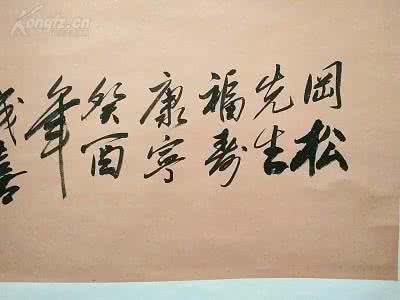 岡松
先生
福寿
康宁
癸酉
年
Kongfz.cn